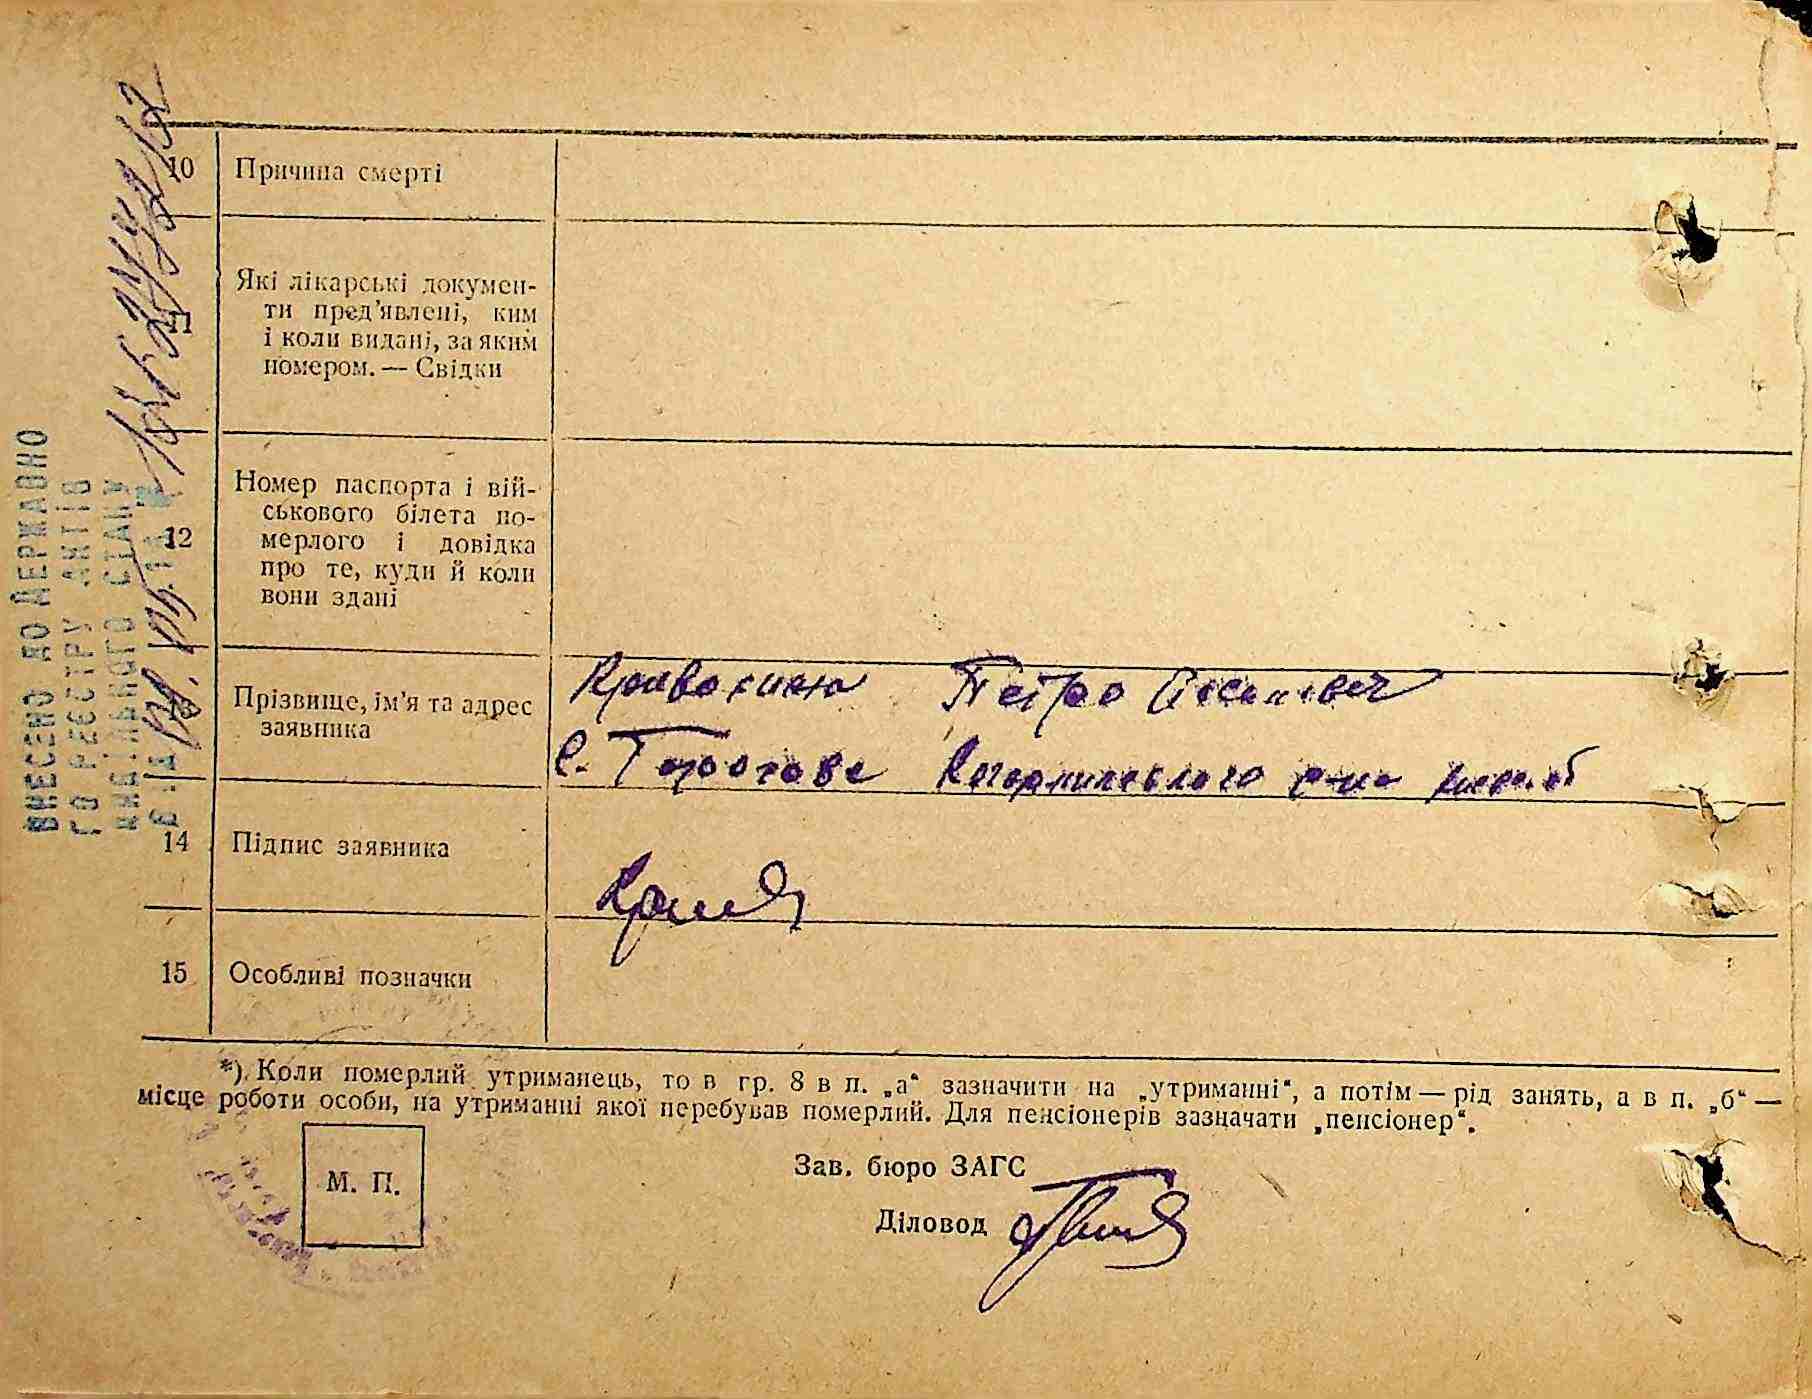 10 Причина смерті
11 Які лікарські докумен-
ти пред'явлені, ким
і коли видані, за яким
номером. — Свідки
12 Номер паспорта і вій-
ськового білета по-
мерлого і довідка
про те, куди й коли
вони здані
13 Прізвище, ім'я та адрес
заявника
Петро
с.
14 Підпис заявника
15 Особливі позначки
*) Коли померлий утриманець, то в гр. 8 в п. „а“ зазначити на „утриманні“, а потім — рід занять, а в п. „б“ —
місце роботи особи, на утриманні якої перебував померлий. Для пенсіонерів зазначати „пенсіонер“.
М. П.
Зав. бюро ЗАГС
Діловод
ВНЕСЕНО ДО ДЕРЖАВНО
ГО РЕЄСТРУ АКТІВ
ЦИВІЛЬНОГО СТАНУ